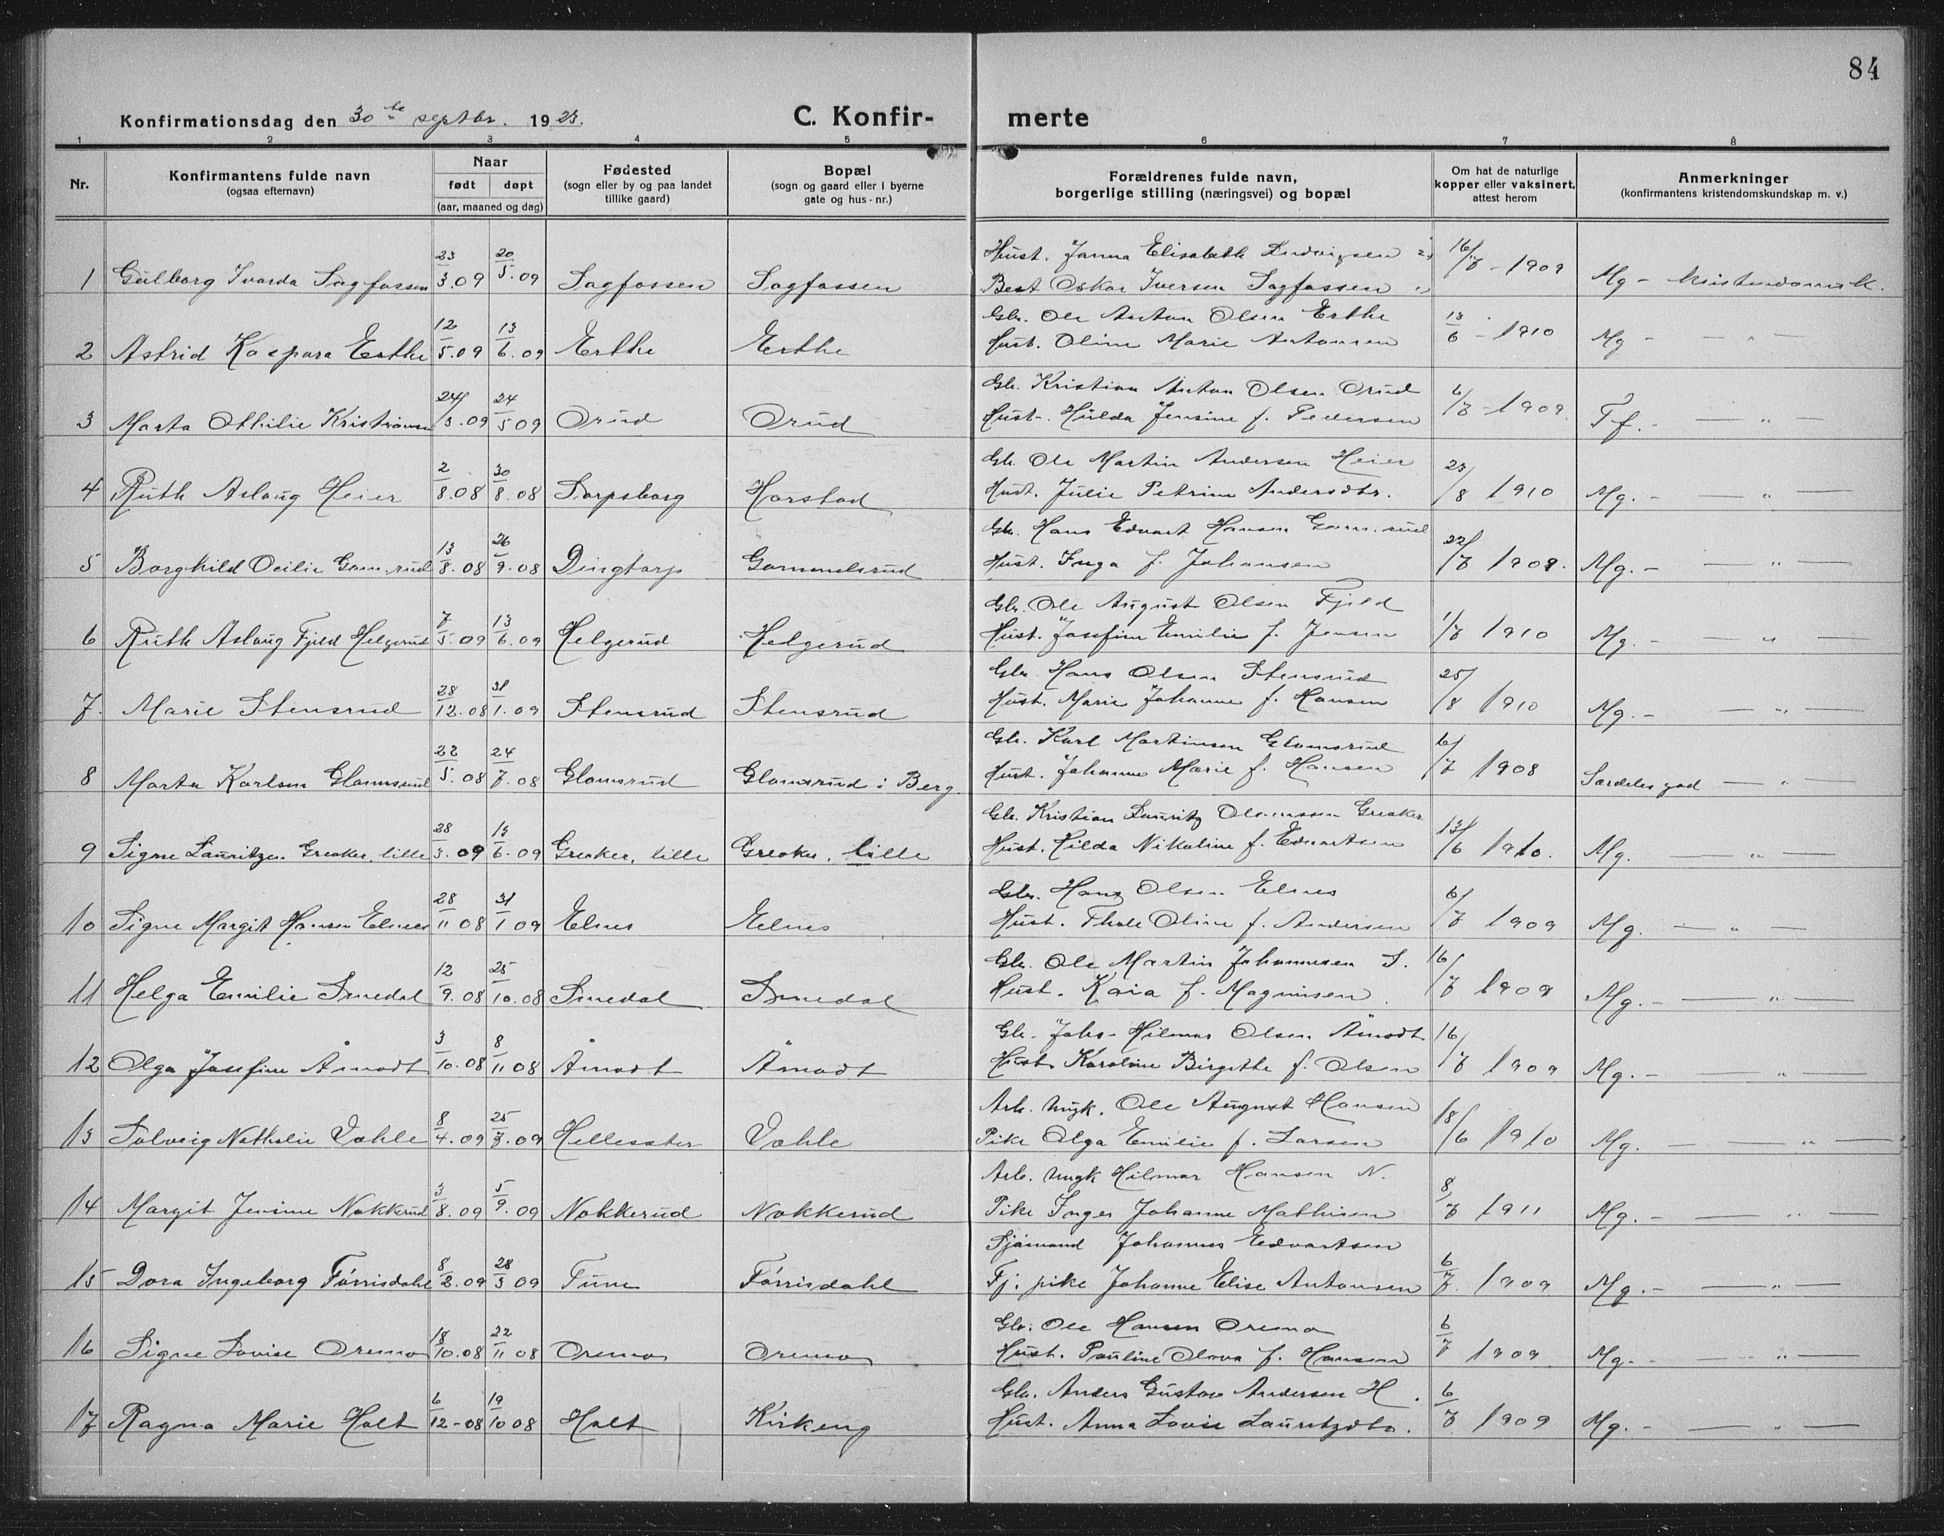 84
Konfirmationsdag den 30te septbr. 1923.
C. Konfir-merte
1 2 3 4 5 6 7 8
Nr.
Konfirmantens fulde navn
(ogsaa efternavn)
Naar
født døpt
(aar, maaned og dag)
Fødested
(sogn eller by og paa landet
tillike gaard)
Bopæl
(sogn og gaard eller i byerne
gate og hus-nr.)
Forældrenes fulde navn,
borgerlige stilling (næringsvei) og bopæl
Om hat de naturlige
kopper eller vaksinert,
attest herom
Anmerkninger
(konfirmantens kristendomskundskap m. v.)
Hust. Janna Elisabeth Ludvigsen
1 Gulborg Ivarda Sagfossen 23/3.09 20/5.09 Sagfossen Sagfossen Best Oskar Iversen Sagfossen 16/7-1909 Mg - kristendomsk.
Gbr. Ole Anton Olsen Erthe
2 Astrid Kaspara Erthe 12/5.09 13/6.09 Erthe Erthe Hust. Oline Marie Antonsen 13/6-1910 Mg - — " —
Gbr. Kristian Anton Olsen Orud
3 Marta Othilie Kristiansen 24/3.09 24/5 09 Orud Orud Hust. Hulda Jensine f. Pedersen 6/7-1909. Tf. - — " —
Gbr. Ole Martin Andersen Heier
4 Ruth Aslaug Heier 2/8.08 30/8.08 Sarpsborg Harstad Hust. Julie Petrine Andersdtr. 23/8 1910 Mg. - — " —
Gbr. Hans Edvart Hansen Gam.rud
5 Borghild Ocilie Gam.rud 13/8.08 26/9.08 Dingtorp Gammelsrud Hust. Inga f. Johansen 22/7 1909. Mg. - — " —
Gbr. Ole August Olsen Fjeld
6 Ruth Aslaug Fjeld Helgerud 7/5.09 13/6.09 Helgerud Helgerud Hust. Josefine Emilie f. Jensen 1/7 1910 Mg. - — " —
Gbr. Hans Olsen Stensrud
7. Marie Stensrud 28/12.08 31/1.09 Stensrud Stensrud Hust. Marie Johanne f. Hansen 25/8 1910 Mg. - — " —
Gbr. Karl Martinsen Glomsrud
8 Marta Karlsen Glomsrud 22/5.08 24/7.08 Glomsrud Glomsrud i Berg. Hust. Johanne Marie f. Hansen 6/7 1908 Særdeles god — " —
Gbr. Kristian Lauritz Greaker
9 Signe Lauritzen Greaker, lille 28/3.09 13/6.09 Greaker, lille Greaker, lille Hust. Hilda Nikoline f. Edvartsen 13/6 1910. Mg. — " —
Gbr. Hans Olsen Elnes
10 Signe Margit Hansen Elnes 28/11 08 31/1 09 Elnes Elnes Hust. Thale Oline f. Andersen 6/7 1909 Mg. — " —
Gbr. Ole Martin Johannesen S.
11 Helga Emilie Smedal 12/9.08 25/10.08 Smedal Smedal Hust. Kaia f. Magnusen 16/7 1909 Mg. - — " —
Gbr. Johs. Hilmar Olsen Åmodt
12 Olga Josefine Åmodt 3/10.08 8/11 08 Åmodt Åmodt Hust. Karoline Birgitte f. Olsen 16/7 1909 Mg. - — " —
Arb. ungk. Ole August Hansen
13 Solveig Nathalie Dahle 8/4.09 25/7.09 Hellesæter Dahle Pike Olga Emilie f. Larsen 18/6 1910 Mg. — " —
Arb. ungk Hilmar Hansen N.
14 Margit Jensine Nakkerud 3/8.09 5/9.09 Nakkerud Nakkerud Pike Inger Johanne Mathisen 8/7 1911 Mg. - — " —
Sjømand Johannes Edvartsen
15 Dora Ingeborg Tørrisdahl 8/2.09 28/3 09 Tune Tørrisdahl Tj. pike Johanne Elise Antonsen 6/7. 1909 Mg. - — " —
Gbr. Ole Hansen Oremo
16 Signe Lovise Oremo 18/10.08 22/11 08 Oremo Oremo Hust. Pauline Olava f. Hansen 6/7 1909. Mg. - — " —
Gbr. Anders Gustav Andersen H.
17 Ragna Marie Holt 6/12-08 19/10 08 Holt Kirkeng Hust. Anna Lovise Lauritzdtr. 6/7 1909 Mg. — " —